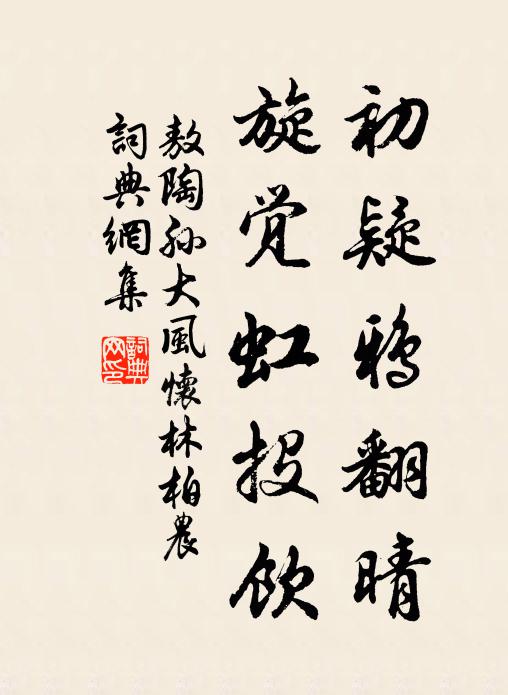 初疑鸦翻晴
旋觉虹投饮
敖陶孙大風懷林柏農
詞典網集
詞典网印